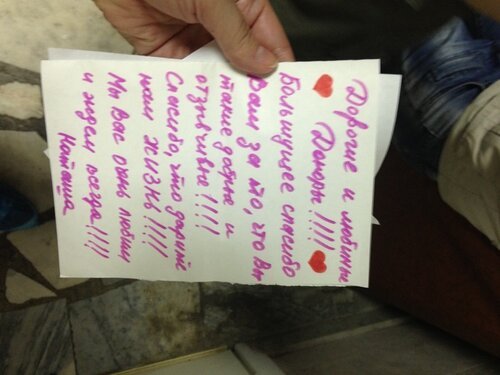 Дорогие и любимые
Доноры!!!!
Большущее спасибо
Вам за то, что Вы
такие добрые и
отзывчивые!!!!
Спасибо, что дарите
нам жизнь!!!!
Мы Вас очень любим
и ждем всегда!!!!
Наташа